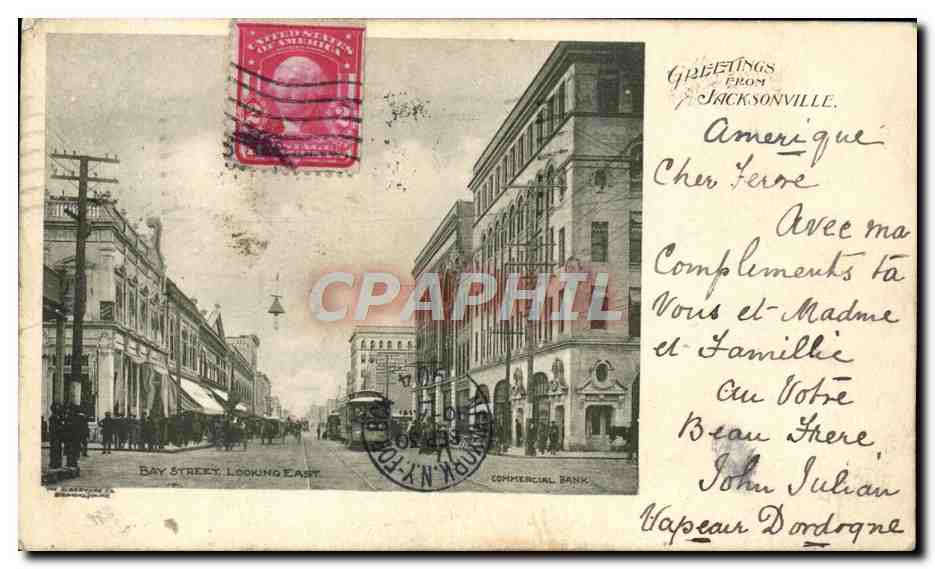 UNITED STATES
OF AMERICA
POSTAGE
GREETINGS
FROM
JACKSONVILLE.
Amerique
Cher Ferre
Avec ma
Complements ta
Vous et Madme
et Famillie
au Votre
Beau Frere
John Julian
Vapeair Dordogne
CPAPHIL
NEW YORK N.Y.
SEP 30
BAY STREET, LOOKING EAST.
COMMERCIAL BANK